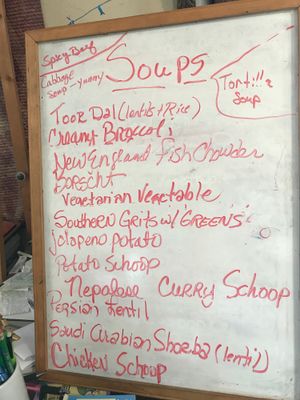 Spicy Beef
Cabbage Soup - yummy
SOUPS
Tortilla Soup
Toor Dal (lentils + Rice)
Creamy Broccoli
New England Fish Chowder
Borscht
Vegetarian Vegetable
Southern Grits w/ GREENS
jalapeno potato
Potato Schoop
Nepalese Curry Schoop
Persian Lentil
Saudi Arabian Shoeba (lentil)
Chicken Schoop